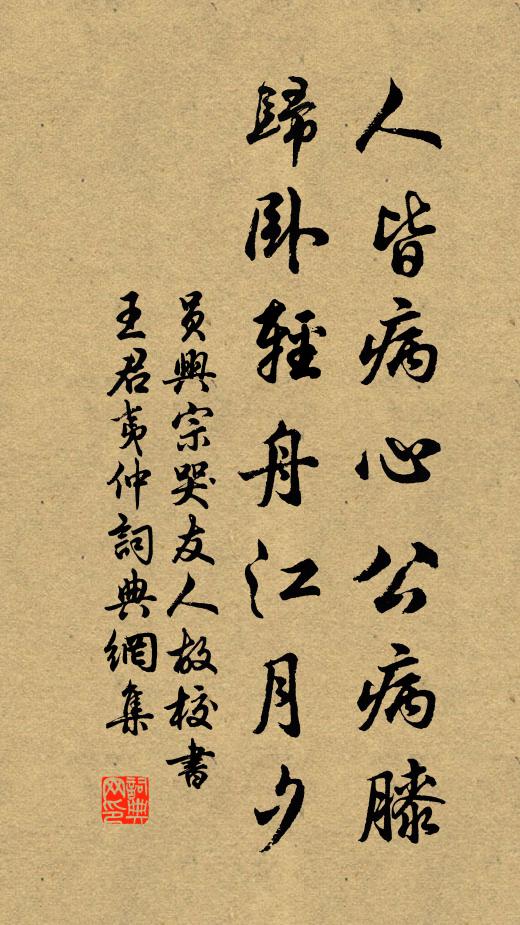 人皆病心公病膝
歸臥輕舟江月夕
員興宗哭友人故校書
王君夷仲詞典網集
詞典网印